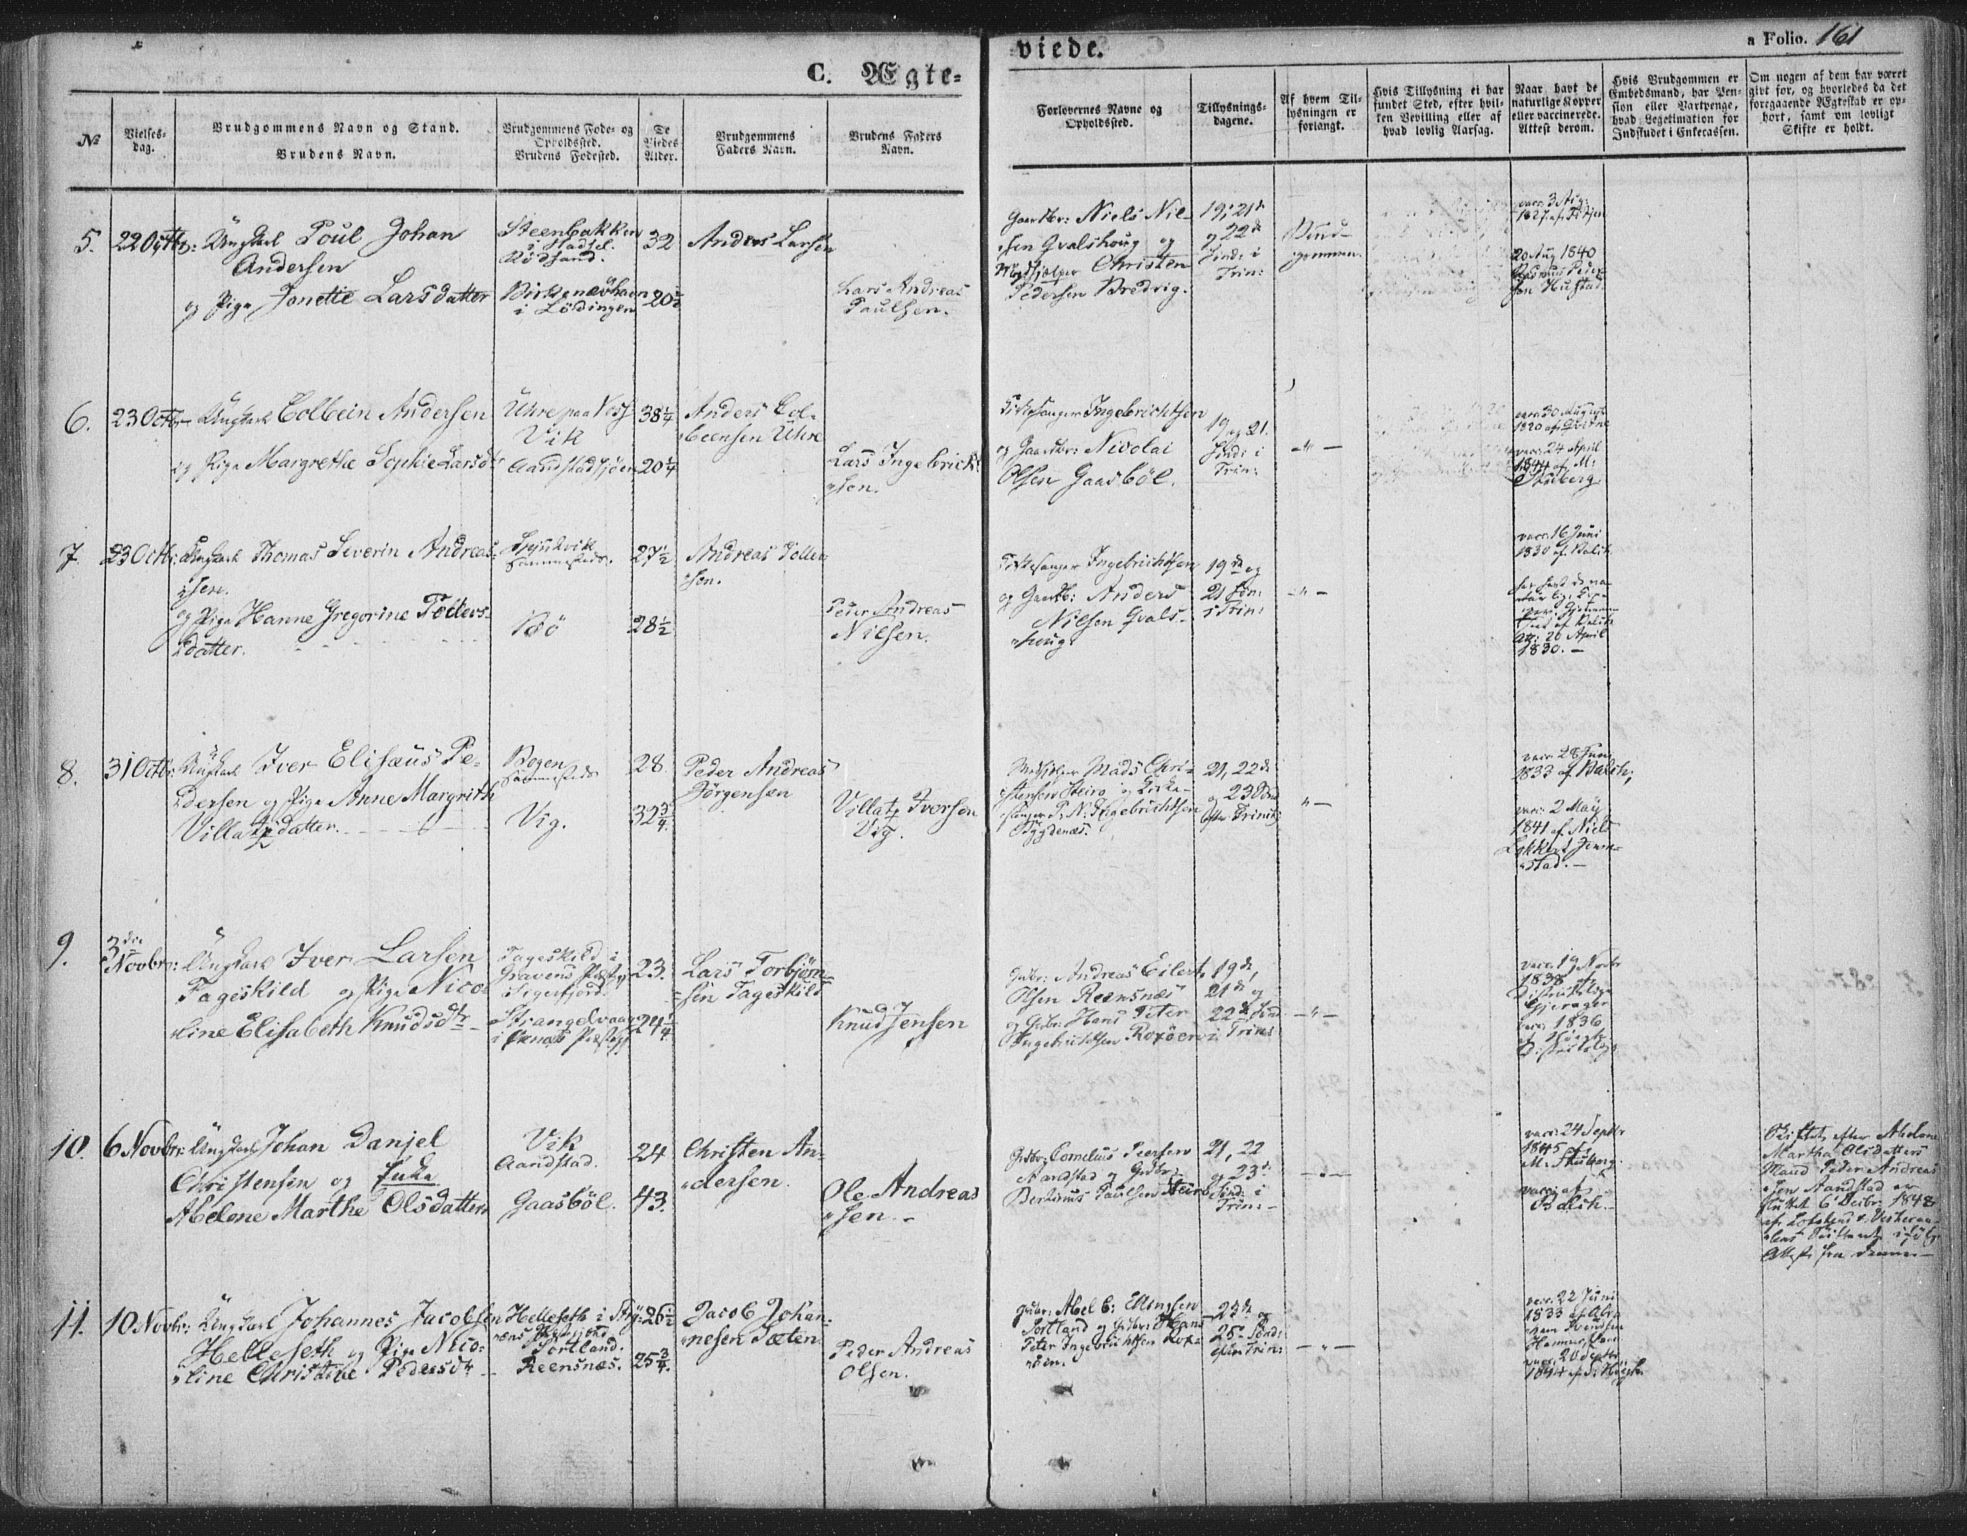 C. Ægte-
viede.
a Folio. 161
№
Vielses-
dag.
Brudgommens Navn og Stand.
Brudens Navn.
Brudgommens Føde- og
Opholdssted.
Brudens Fødested.
De
Viedes
Alder.
Brudgommens
Faders Navn.
Brudens Faders
Navn.
Forlovernes Navne og
Opholdssted.
Tillysnings-
dagene.
Af hvem Til-
lysningen er
forlangt.
Hvis Tillysning ei har
fundet Sted, efter hvil-
ken Bevilling eller af
hvad lovlig Aarsag.
Naar havt de
naturlige Kopper
eller vaccinerede.
Attest derom.
Hvis Brudgommen er
Embedsmand, har Pen-
sion eller Vartpenge,
hvad Legetimation for
Indskudet i Enkecassen.
Om nogen af dem har været
givt før, og hvorledes da det
foregaaende Ægteskab er op-
hørt, samt om lovligt
Skifte er holdt.
5. 22 Octbr: Ungkarl Poul Johan
Andersen
og Pige Jonette Larsdatter
Steenbakken
i Hadsel.
Rødsand.
i Lødingen
32
20½
Anders Larsen
Lars Andreas
Paulsen.
Gaardbr: Niels Niel-
sen Qvalshoug og
Christen
Pedersen Bredvig.
19, 21de
og 22de
Sønd: i
Trin:
Brud-
gommen.
vacc: 3 Aug:
20 Aug 1840
Rasmus Peder-
sen Hustad.
6. 23 Octbr Ungkarl Colbein Andersen
og Pige Margrethe Sophie Larsdtr
Uhre paa Voss
Vik
Aandstadsjøen
38¼
20¼
Anders Col-
beensen Uhre
Lars Ingebrickt-
sen.
Kirkesanger Ingebrichtsen
og Gaardbr: Nicolai
Olsen Gaasbøl.
19 og 21.
Sønd: i
Trin:
- " -
vacc: 30 August
1820 af
vacc: 24 April
1844 af M:
Stuberg
7. 23 Octbr: Ungkarl Thomas Severin Andreas-
sen.
og Pige Hanne Gregorine Peders-
datter.
Bø
27½
28½
Andreas Toller-
sen.
Peder Andreas
Nielsen.
Kirkesanger Ingebrichtsen
og Gaardbr: Anders
Nielsen Qvals-
houg
19de og
21 Søn:
i Trin:
- " -
vacc: 16 Juni
1830 af Balch
26 April
1830. -
8. 31 Octbr: Ungkarl Iver Elisæus Pe-
dersen og Pige Anne Margrith
Villatzdatter.
Bogen
sammesteds
Vig.
28
32¾
Peder Andreas
Jørgensen
Villatz Iversen
Vig.
Mads Chri-
stensen Steiro og Kirke-
sanger P. N. Ingebrichtsen
21, 22de
og 23 Sønd
efter Trinit:
" -
vacc: 28 Juni
1833 af Balch;
vacc: 2 May
1841 af Niels
Lokkert Jenn-
estad. -
9. 3die
Novbr: Ungkarl Iver Larsen
Fageskild og Pige Nico-
line Elisabeth Knudsdtr
Fageskild i
Gravens Præstgj
Sigerfjord.
23.
24¼
Lars Torbjørn-
sen Fageskild
Knud Jensen
Gdbr: Andreas Eilert
Olsen Reensnæs
og Gdbr: Hans Peter
Ingebrichtsen Roxøen
19de,
21de og
22de Sønd
i Trini
- " -
vacc: 19 Novbr
1838 af
Distriktslæge
vacc: 1836
10. 6 Novbr: Ungkarl Johan Danjel
Christensen og Enke
Abelone Marthe Olsdatter
Vik
Aandstad.
Gaasbøl.
24
43.
Christen An-
dersen.
Ole Andreas
sen. -
Gdbr: Cornelius Peersen
Aandstad og Gdbr:
Bertinus Paulsen Steiro
21, 22
og 23de
Sønd: i
Trin: -
- " -
vacc: 24 Septbr
1845 af
M: Stuberg.
vacc: af
Balch. -
Skiftet efter Abelone
Martha Olsdatters
Mand Peder Andreas
sen Aandstad er
sluttet 6 Decbr. 1848
11. 10 Novbr: Ungkarl Johannes Jacobsen
Helleseth og Pige Nico-
line Christine Pedersdtr
Helleseth i Stry-
Sortland.
Reensnæs.
26½
25¾
Jacob Johan-
nesen Tæten
Peder Andreas
Olsen.
Gdbr: Abel C: Ellingsen
Sortland og Gdbr: Hans
Peter Ingebrichtsen Roxø-
en.
23de og
25de Sønd:
efter Trin:
- " -
vacc: 22 Juni
1833 af Abra
ham Svendsen
vacc: 20 Septbr
1844 af